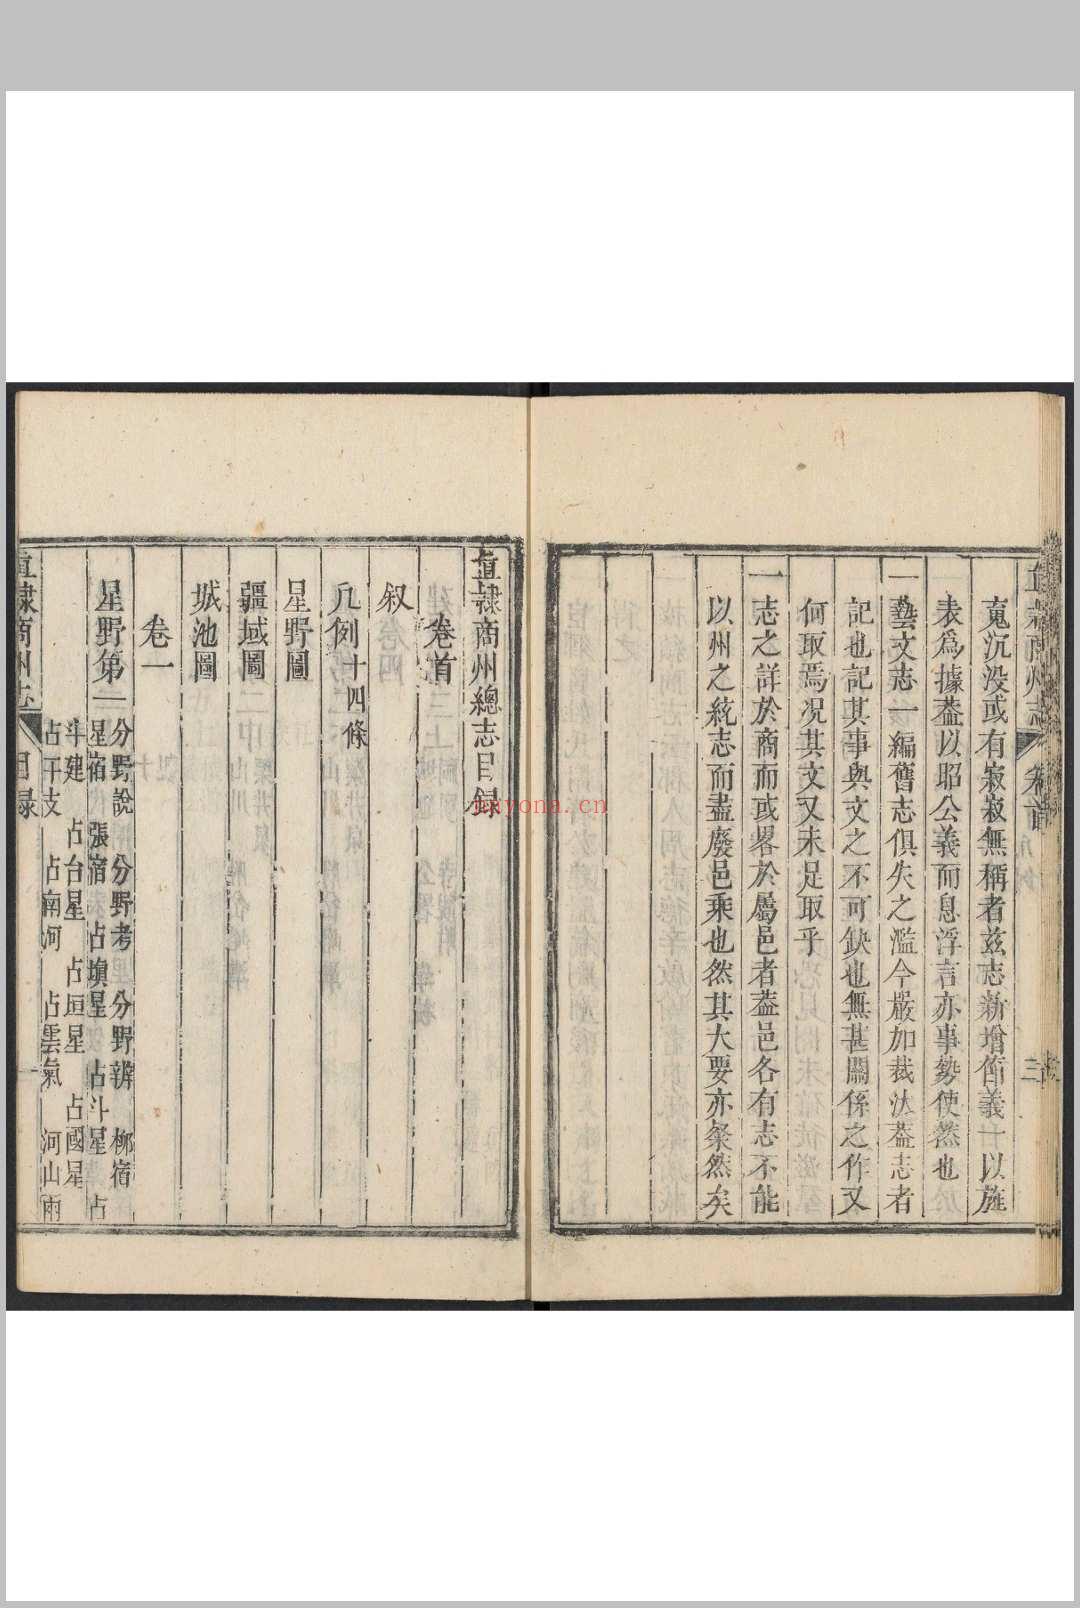 直隸商州志
卷首
三
寃沉没或有寂寂無稱者兹志新增節義十以旌
表爲據葢以昭公義而息浮言亦事勢使然也
一藝文志一編舊志俱失之濫今嚴加裁汰葢志者
記也記其事與文之不可缺也無甚關係之作又
何取焉况其文又未足取乎
一志之詳於商而或畧於屬邑者葢邑各有志不能
以州之統志而盡廢邑乘也然其大要亦粲然矣
直隸商州總志目録
卷首
叙
凡例十四條
星野圖
疆域圖
城池圖
卷一
星野第一
分野說 分野考 分野辨 柳宿
星宿 張宿 占填星 占斗星 占
斗建 占台星 占垣星 占國星
占干支 占南河 占雲氣 河山雨
直隸商州志
目録
一
nayona.cn